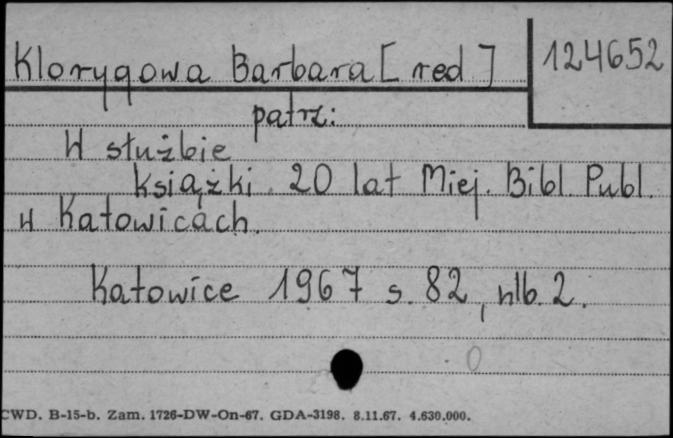 Klorygowa Barbara [red]
124652
patrz:
W służbie
książki. 20 lat Miej. Bibl. Publ.
w Katowicach.
Katowice 1967 s. 82, nlb. 2.
0
CWD. B-15-b. Zam. 1726-DW-On-67. GDA-3198. 8.11.67. 4.630.000.